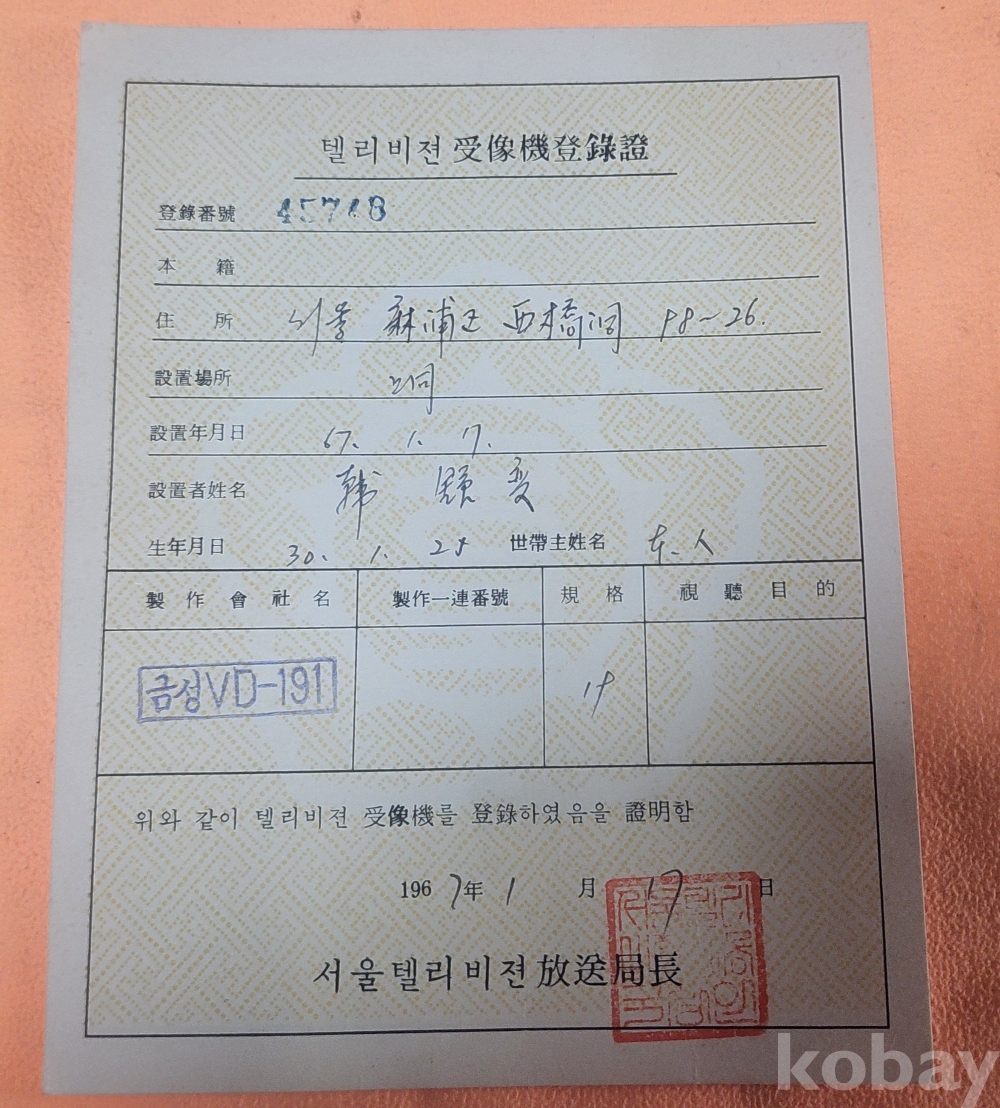 텔리비젼 受像機登錄證
登錄番號 45748
本籍
住所 서울 麻浦區 西橋洞 98~26.
設置場所 上同
設置年月日 67. 1. 17.
設置者姓名 韓
生年月日 30. 1. 29 世帶主姓名 本人
製作會社名 製作一連番號 規格 視聽目的
금성VD-191 19
위와 같이 텔리비젼 受像機를 登錄하였음을 證明함
1967年 1月 17日
서울텔리비젼放送局長
kobay